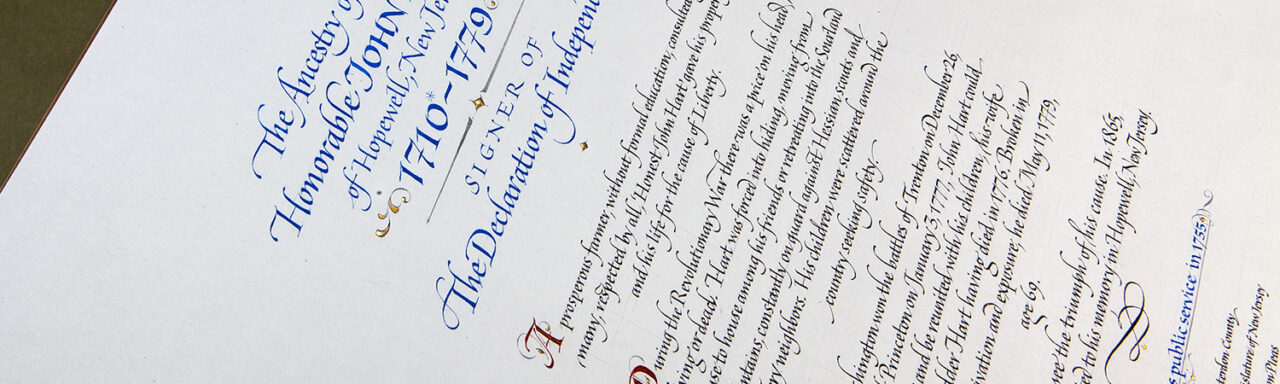 The Ancestry of
Honorable JOHN
of Hopewell, New Jer
1710*~1779
SIGNER OF
The Declaration of Independen
A prosperous farmer, without formal education, consulta
many, respected by all, Honest John Hart gave his proper
and his life for the cause of Liberty.
During the Revolutionary War there was a price on his head,
ving or dead. Hart was forced into hiding, moving from
se to house among his friends or retreating into the Sourland
ntains, constantly on guard against Hessian scouts and
ry neighbors. His children were scattered around the
country seeking safety.
hington won the battles of Trenton on December 26,
Princeton on January 3, 1777, John Hart could
and be reunited with his children, his wife
lder Hart having died in 1776. Broken in
vation and exposure, he died May 11, 1779,
age 69.
ee the triumph of his cause. In 1865,
ed to his memory in Hopewell, New Jersey.
s public service in 1755
terdon County
islature of New Jersey